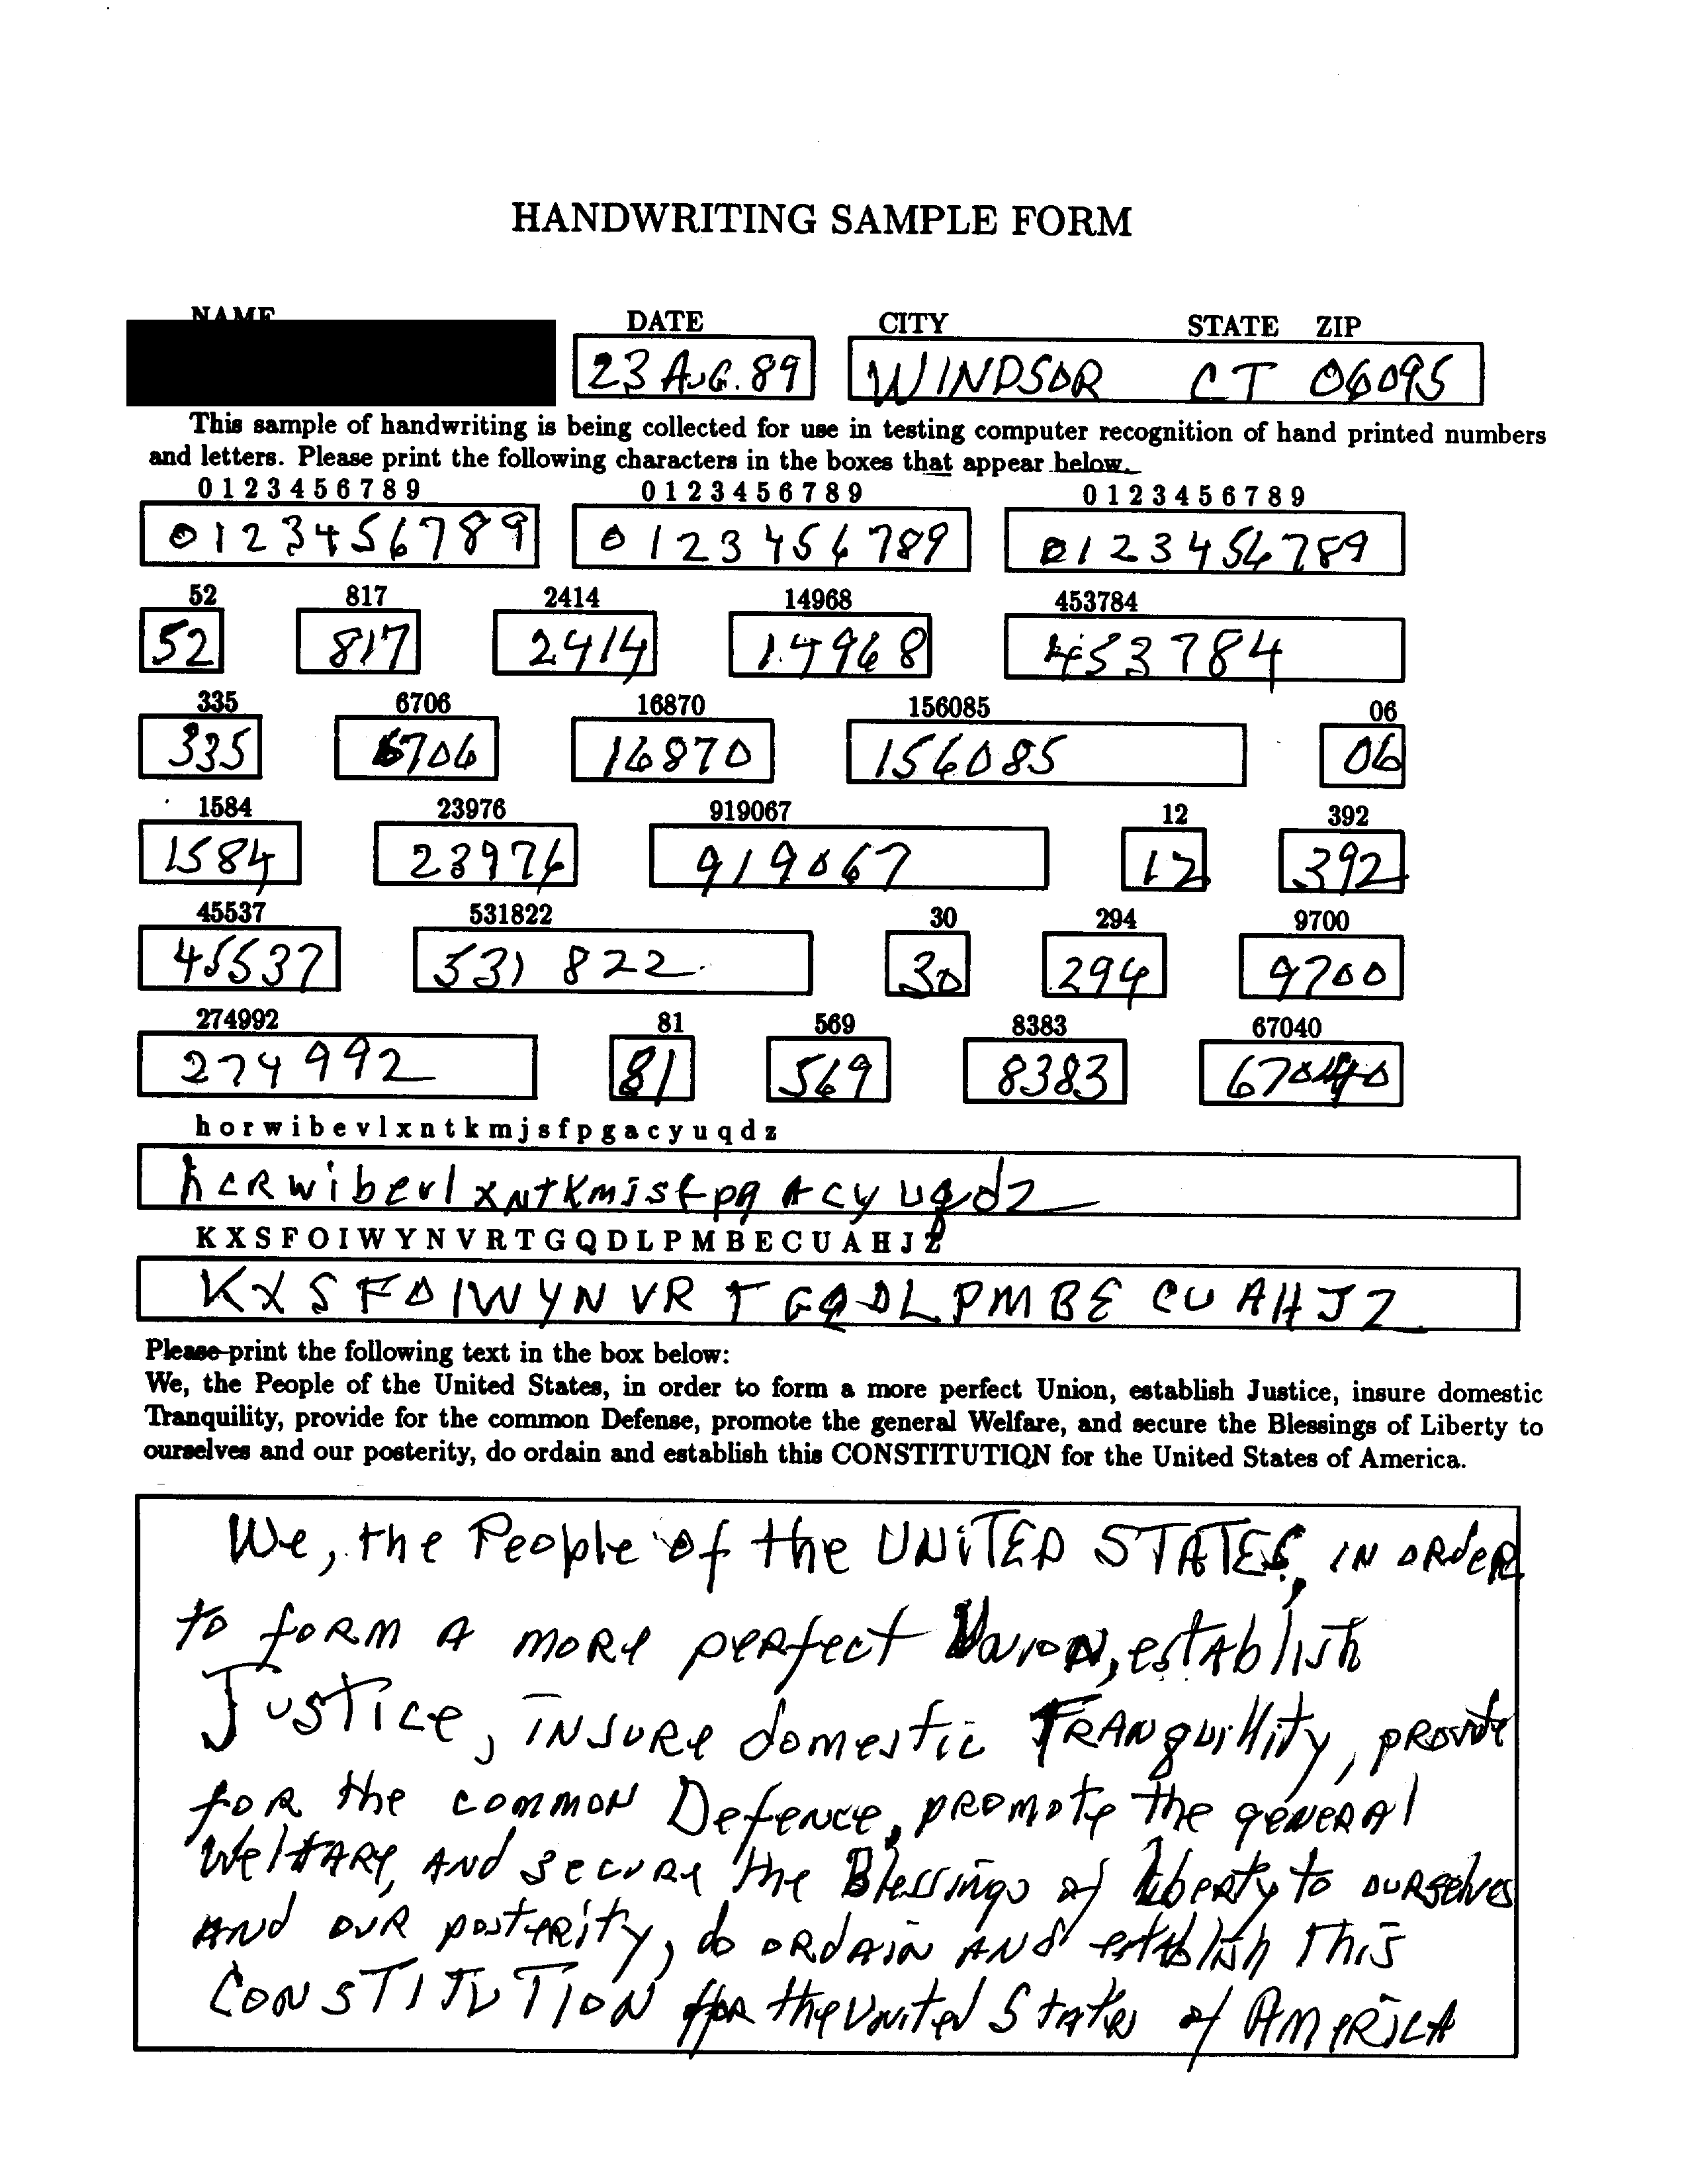 HANDWRITING SAMPLE FORM
NAME DATE CITY STATE ZIP
23 AUG. 89 WINDSOR CT 06095
This sample of handwriting is being collected for use in testing computer recognition of hand printed numbers
and letters. Please print the following characters in the boxes that appear below.
0 1 2 3 4 5 6 7 8 9 0 1 2 3 4 5 6 7 8 9 0 1 2 3 4 5 6 7 8 9
0123456789 0123456789 0123456789
52 817 2414 14968 453784
52 817 2414 14968 453784
335 6706 16870 156085 06
335 6706 16870 156085 06
1584 23976 919067 12 392
1584 23976 919067 12 392
45537 531822 30 294 9700
45537 531822 30 294 9700
274992 81 569 8383 67040
274992 81 569 8383 67040
h o r w i b e v l x n t k m j s f p g a c y u q d z
h o R w i b e v l x N t K m j s f p g A c y u q d z
K X S F O I W Y N V R T G Q D L P M B E C U A H J Z
K X S F O I W Y N V R T G Q D L P M B E C U A H J Z
Please print the following text in the box below:
We, the People of the United States, in order to form a more perfect Union, establish Justice, insure domestic
Tranquility, provide for the common Defense, promote the general Welfare, and secure the Blessings of Liberty to
ourselves and our posterity, do ordain and establish this CONSTITUTION for the United States of America.
We, the People of the UNiTED STATES, IN ORdeR
to foRM A MORe peRfect UNION, estAblish
JusTice, iNSURe domestic TRANquillity, pRovide
foR the common DefeNce, pRomote the geNeRAl
WelfARe, ANd secuRe the Blessings of libeRty to ouRselves
ANd OUR posteRity, do ORdAiN ANd estAblish This
CONSTITUTION foR the UNited StAtes of AMeRicA